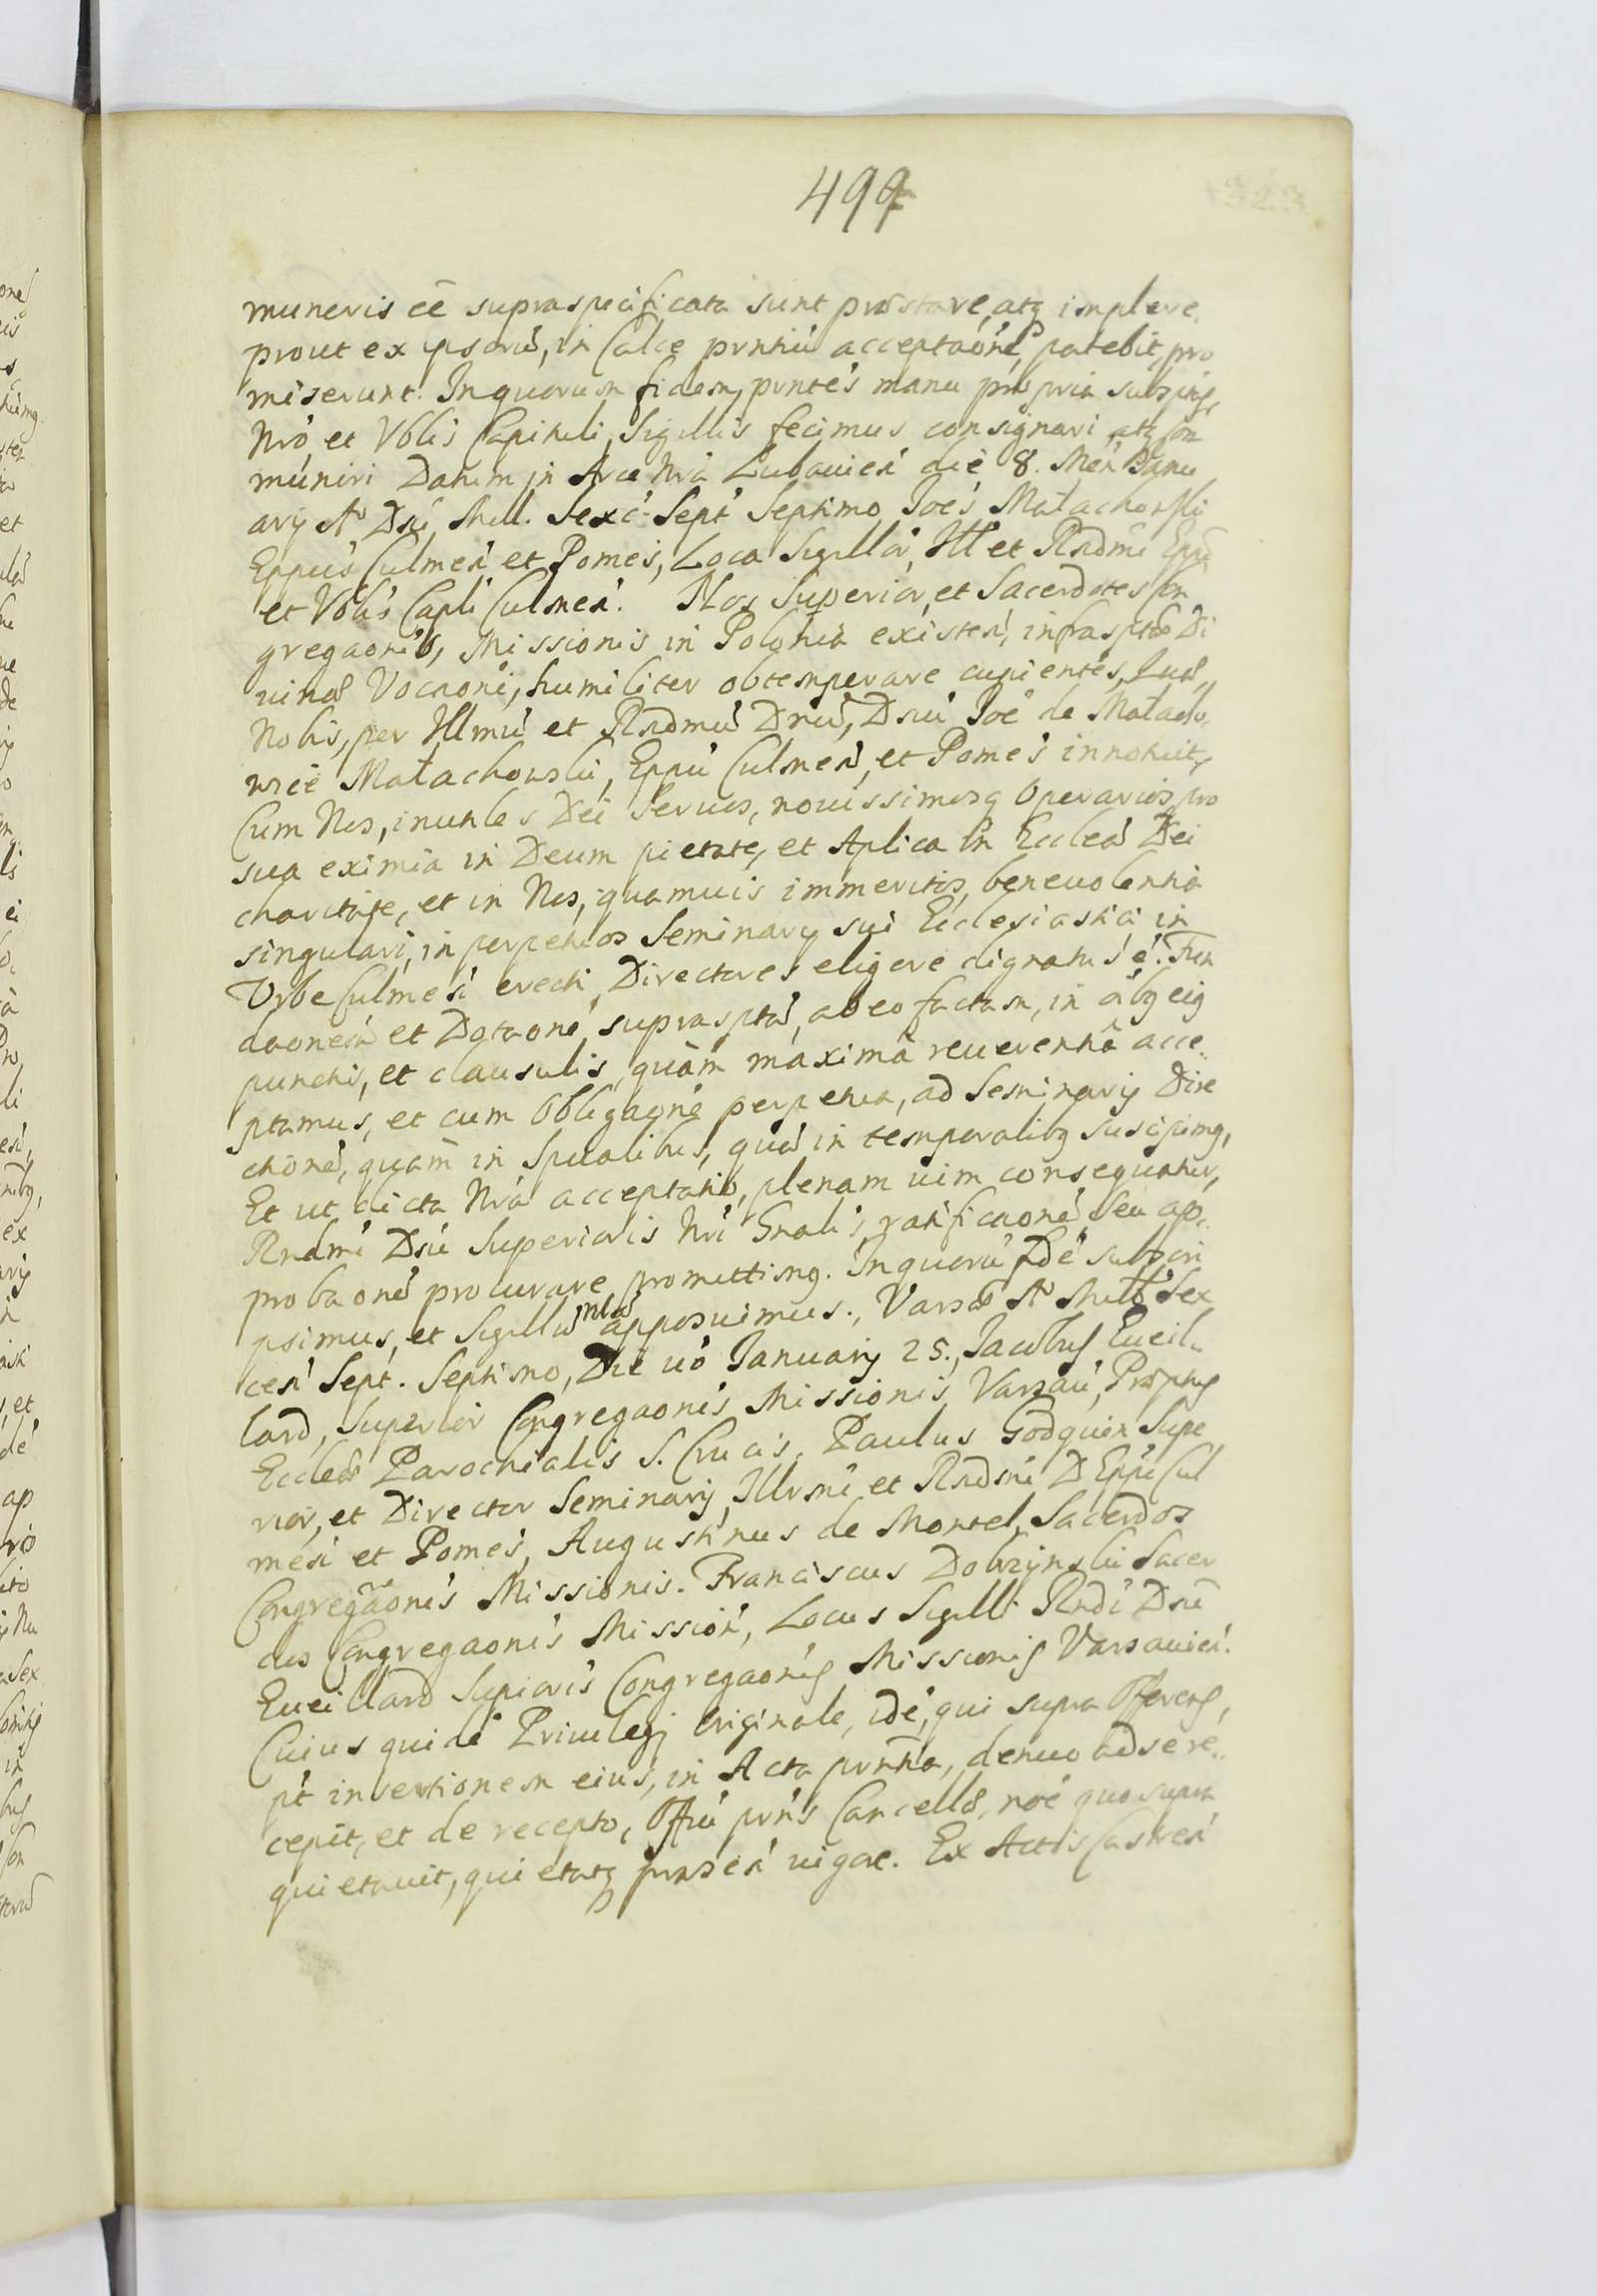 499
muneris eē supraspecificata sunt præstare, atq implere,
prout ex ipsorū, in Calce pvntiū acceptaōne, patebit, pro
miserunt. In quorum fidem, pvntes manu propria subsptas,
Nrō, et Vblis Capituli, Sigillis fecimus consignari atq con
muniri Datum in Arce Nrā Lubauien die 8. Men Janu
arÿ Aº Dnī Mill. Sexc. Sept Septimo Joes Małachowski
Eppus Culmen et Pomes, Loca Sigillor, Ill et Rndmi Eppi
et Vblis Capli Culmen. Nos Superior, et Sacerdotes Con
gregaonis, Missionis in Polonia existen, infrasptæ Di
uinæ Vocaoni, humiliter obtemperare cupientes, quæ
Nobis, per Illmū et Rndmū Dnū, Dnū Joē de Małacho,
wice Małachowski, Eppū Culmen, et Pomes innotuit,
Cum Nos, inutiles Dei Seruos, nouissimosq Operarios, pro
sua eximia in Deum pietate, et Aplica in Ecclea Dei
charitate, et in Nos, quamuis immeritos, beneuolentia
singulari, in perpetuos Seminarÿ sui Ecclesiastici in
Vrbe Culmesi erecti, Directores eligere dignatus é. Fun
daonem et Dotaone, suprasptā, ab eo factam, in oibq eiq
punctis, et clausulis, quàm maximâ reuerentiâ acce,,
ptamus, et cum Obligaone perpetua, ad Seminarÿ Dire
ctionē, quàm in Spūalibus, quā in temporalibq suscipimq,
Et ut dicta Nrā acceptatio, plenam uim consequatur,
Rndmi Dnī Superioris Nri Gnalis, ratificaonē, seu ap,,
probaonē procurare promittimq. In quorū fidē subscri
psimus, et Sigillū nrū apposuimus., Varsæ Aº Mill Sex
cen Sept. Septimo, Die uō JanuarÿJ 25., Jacobus Eueil,,
lard, Superior Congregaonis Missionis, Varsau, Præptus
Eccleæ Parochialis S. Crucis, Paulus Godquin Supe
rior, et Director Seminarÿ, Illrmi et Rndmi D Eppi Cul
mesi et Pomes, Augustinus de Montel, Sacerdos
Congregaōnis Missionis. Franciscus Dobrzÿnski Sacer
dos Congregaonis Mission, Locus Sigilli Rndi Dnī
Eueillard Supioris Congregaonis Missionis Varsauien.
Cuius quidē Priuilegÿ Originale, idē, qui supra Offerens,
pt insertionem eius, in Acta pvntia, denuo ad se re,,
cepit, et de recepto, Offiū pvns Cancellæ, noē quo supra
quietauit, quietatq præsen uigore. Ex Actis Castren